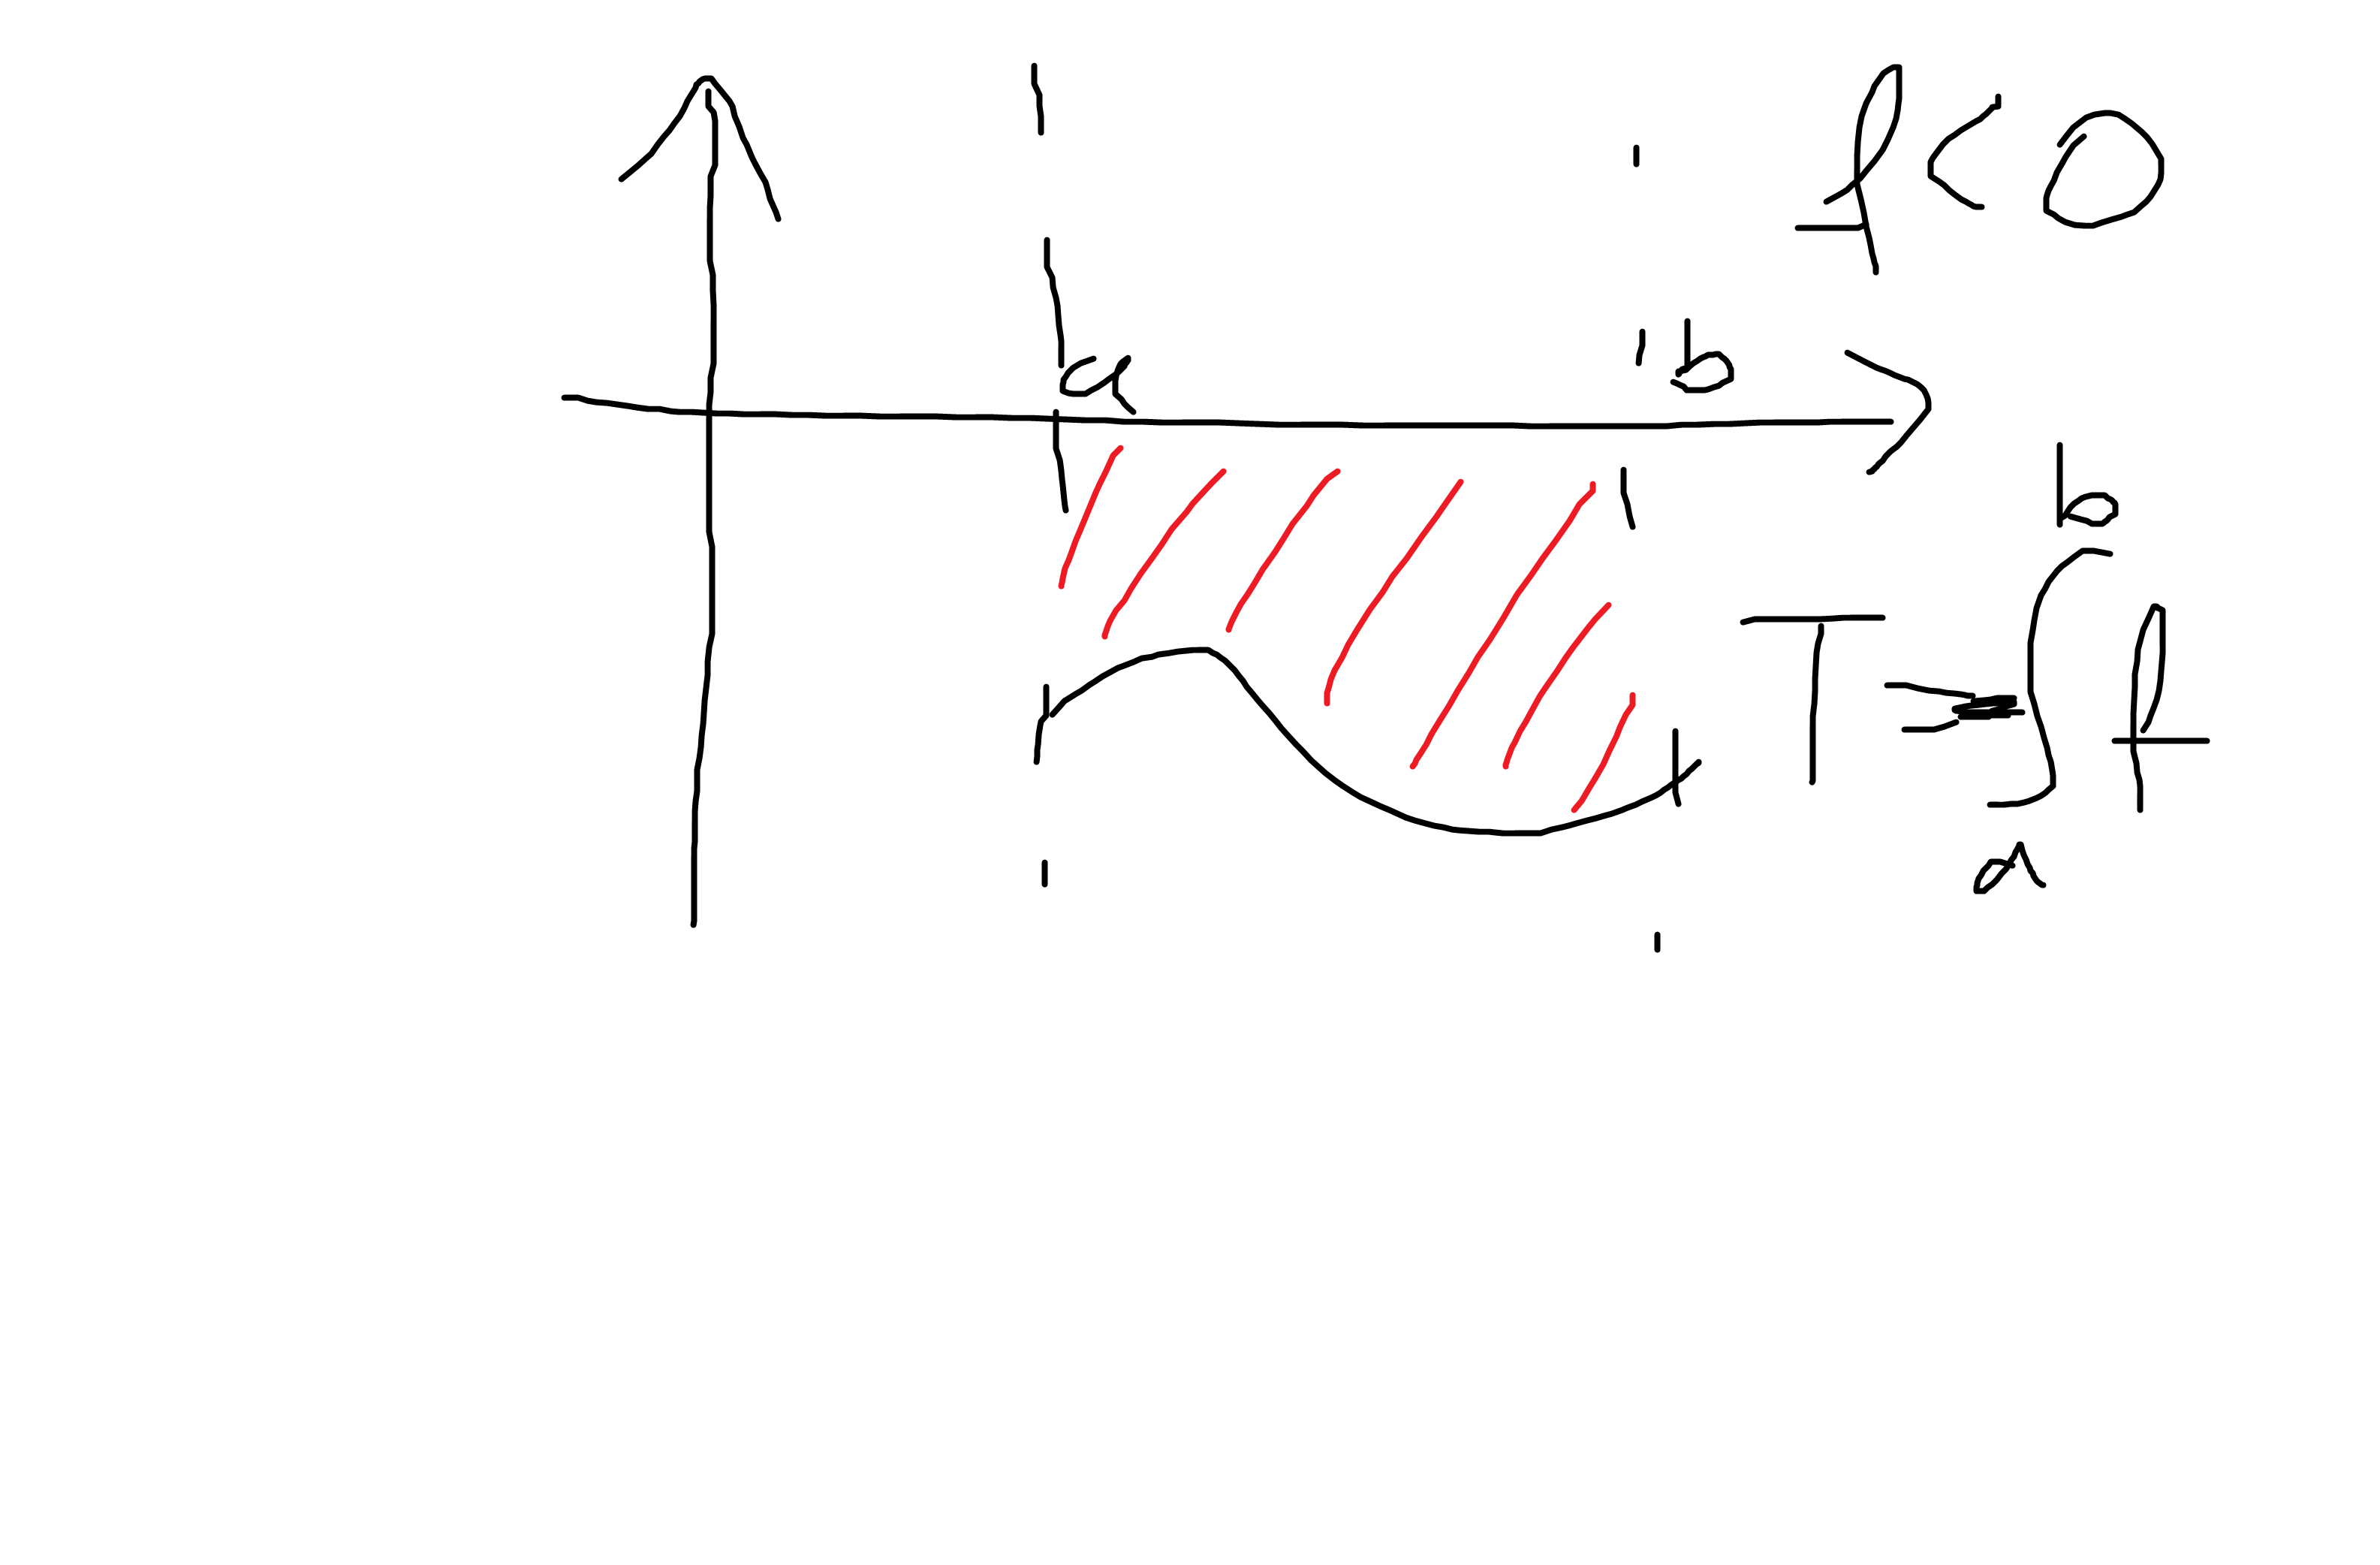 f<0
a b
T=∫_a^b f